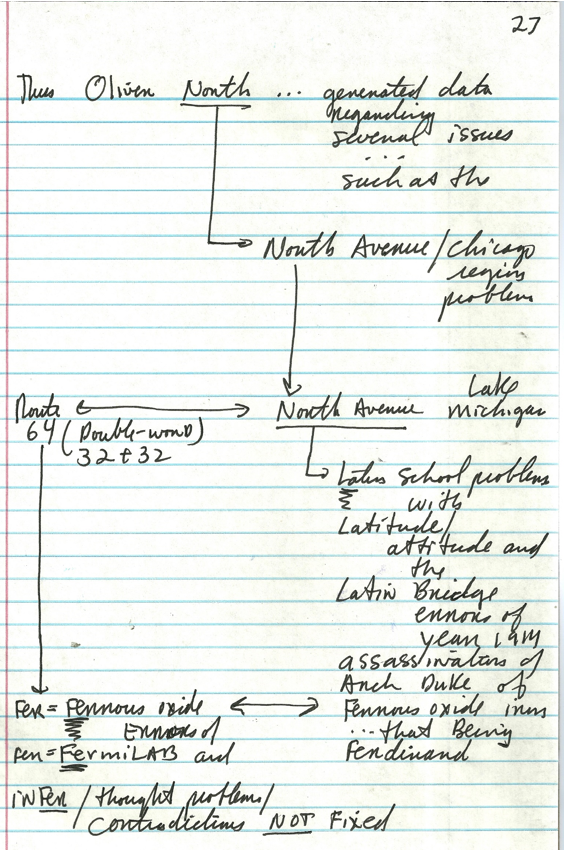 27
Thus Oliver North ... generated data
regarding
several issues
...
such as the
North Avenue / Chicago
region
problem
Lake
Michigan
Route
64 (Double-word)
32 + 32
North Avenue
Latin School problems
with
Latitude/
attitude and
the
Latin Bridge
errors of
year 1914
assassination of
Arch Duke of
Fer = Ferrous oxide
Ferrous oxide iron
Errors of
... that Being
Fer = FermiLAB and
Ferdinand
inFer / thought problems/
contradictions NOT Fixed